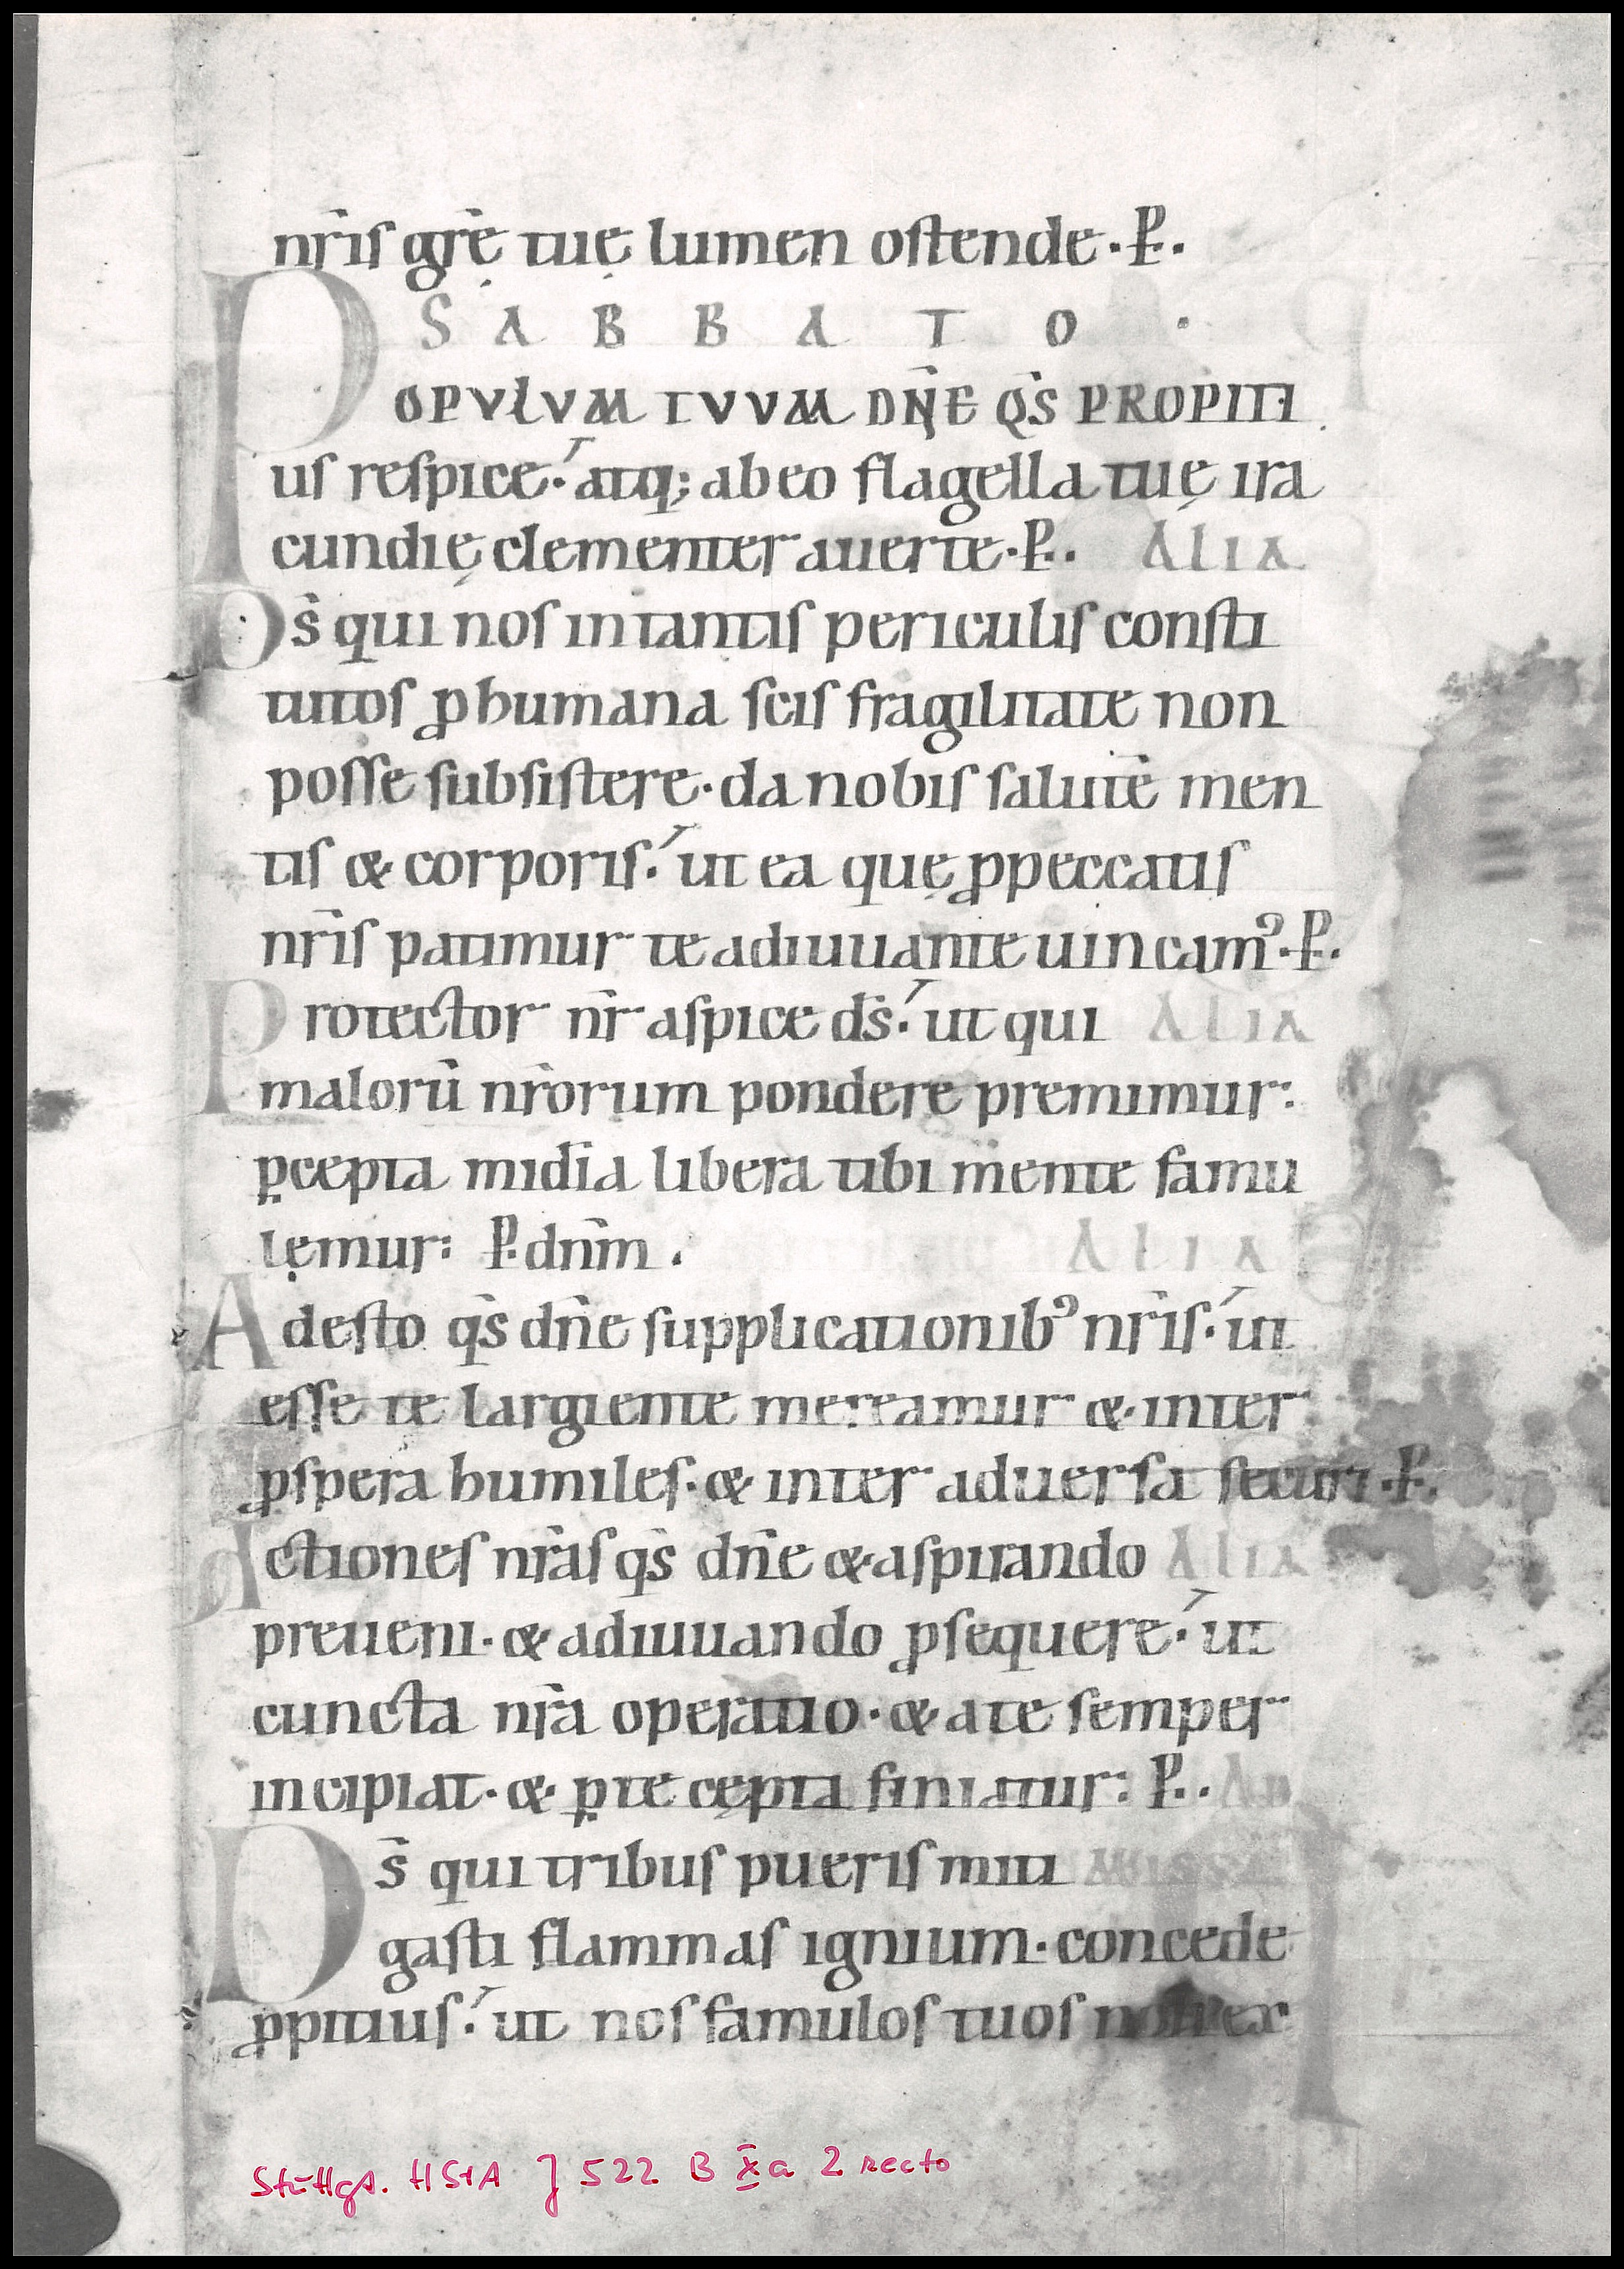 nr̄is gr̄e tuę lumen ostende. P.
SABBATO.
POPVLVM TVVM DN̄E QS̄ PROPITI
us respice. atq; ab eo flagella tuę ira
cundię clementer auerte. P. ALIA
Ds̄ qui nos in tantis periculis consti
tutos ꝓ humana scis fragilitate non
posse subsistere. da nobis salutē men
tis & corporis. ut ea quę ꝓ peccatis
nr̄is patimur te adiuuante uincamꝰ. P.
Protector nr̄ aspice ds̄. ut qui ALIA
malorū nr̄orum pondere premimur:
ꝑcepta mid̄ia libera tibi mente famu
lęmur: P. dn̄m. ALIA
Adesto qs̄ dn̄e supplicationibꝰ nr̄is. ut
esse te largiente mereamur & inter
ꝓspera humiles. & inter aduersa securi. P.
Actiones nr̄as qs̄ dn̄e & aspirando ALIA
preueni. & adiuuando ꝓsequere. ut
cuncta nr̄a operatio. & a te semper
incipiat. & ꝑ te cępta finiatur: P. AD
Ds̄ qui tribus pueris miti MISSA
gasti flammas ignium. concede
ꝓpitius. ut nos famulos tuos non ex
Stuttgt. HStA J 522 B Xa 2 recto